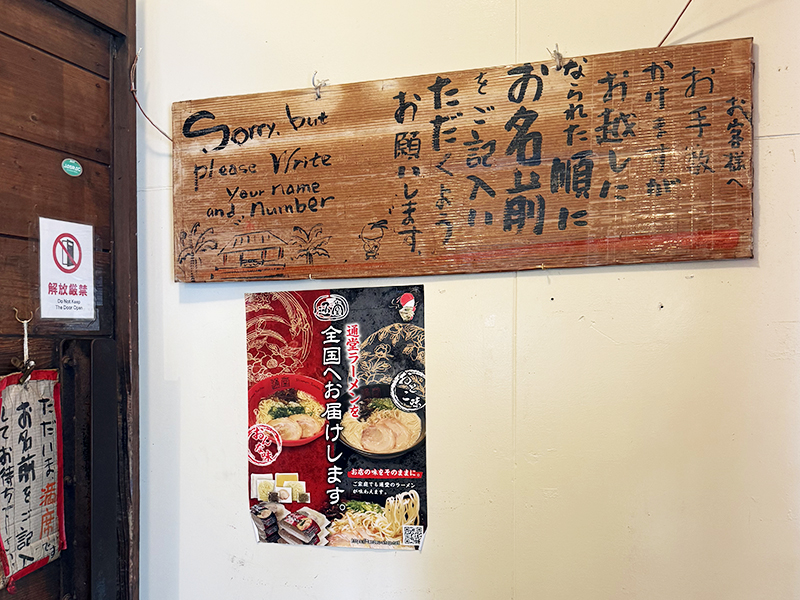 お客様へ
お手数
かけますが
お越しに
なられた順に
お名前
をご記入い
ただくよう
お願いします。
Sorry, but
please Write
your name
and number
解放厳禁
Do Not Keep
The Door Open.
ただいま満席です
お名前をご記入
してお待ち
通堂
通堂ラーメンを
全国へお届けします。
おとこ味
おんな味
お店の味をそのままに。
ご家庭でも通堂のラーメン
が味わえます。